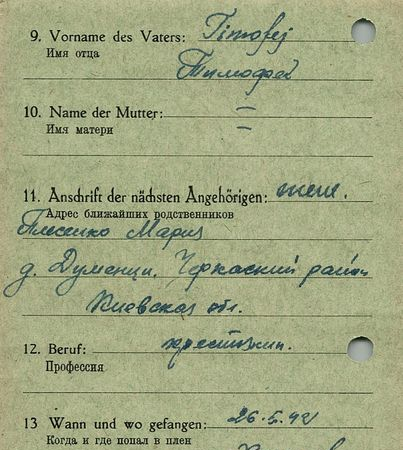 9. Vorname des Vaters: Timofej
Имя отца
Тимофей
10. Name der Mutter: =
Имя матери =
11. Anschrift der nächsten Angehörigen: жене.
Адрес ближайших родственников
Мария
д. Думенци. Черкаский район
Киевская обл.
12. Beruf: крестьянин.
Профессия
13 Wann und wo gefangen: 26.5.42
Когда и где попал в плен